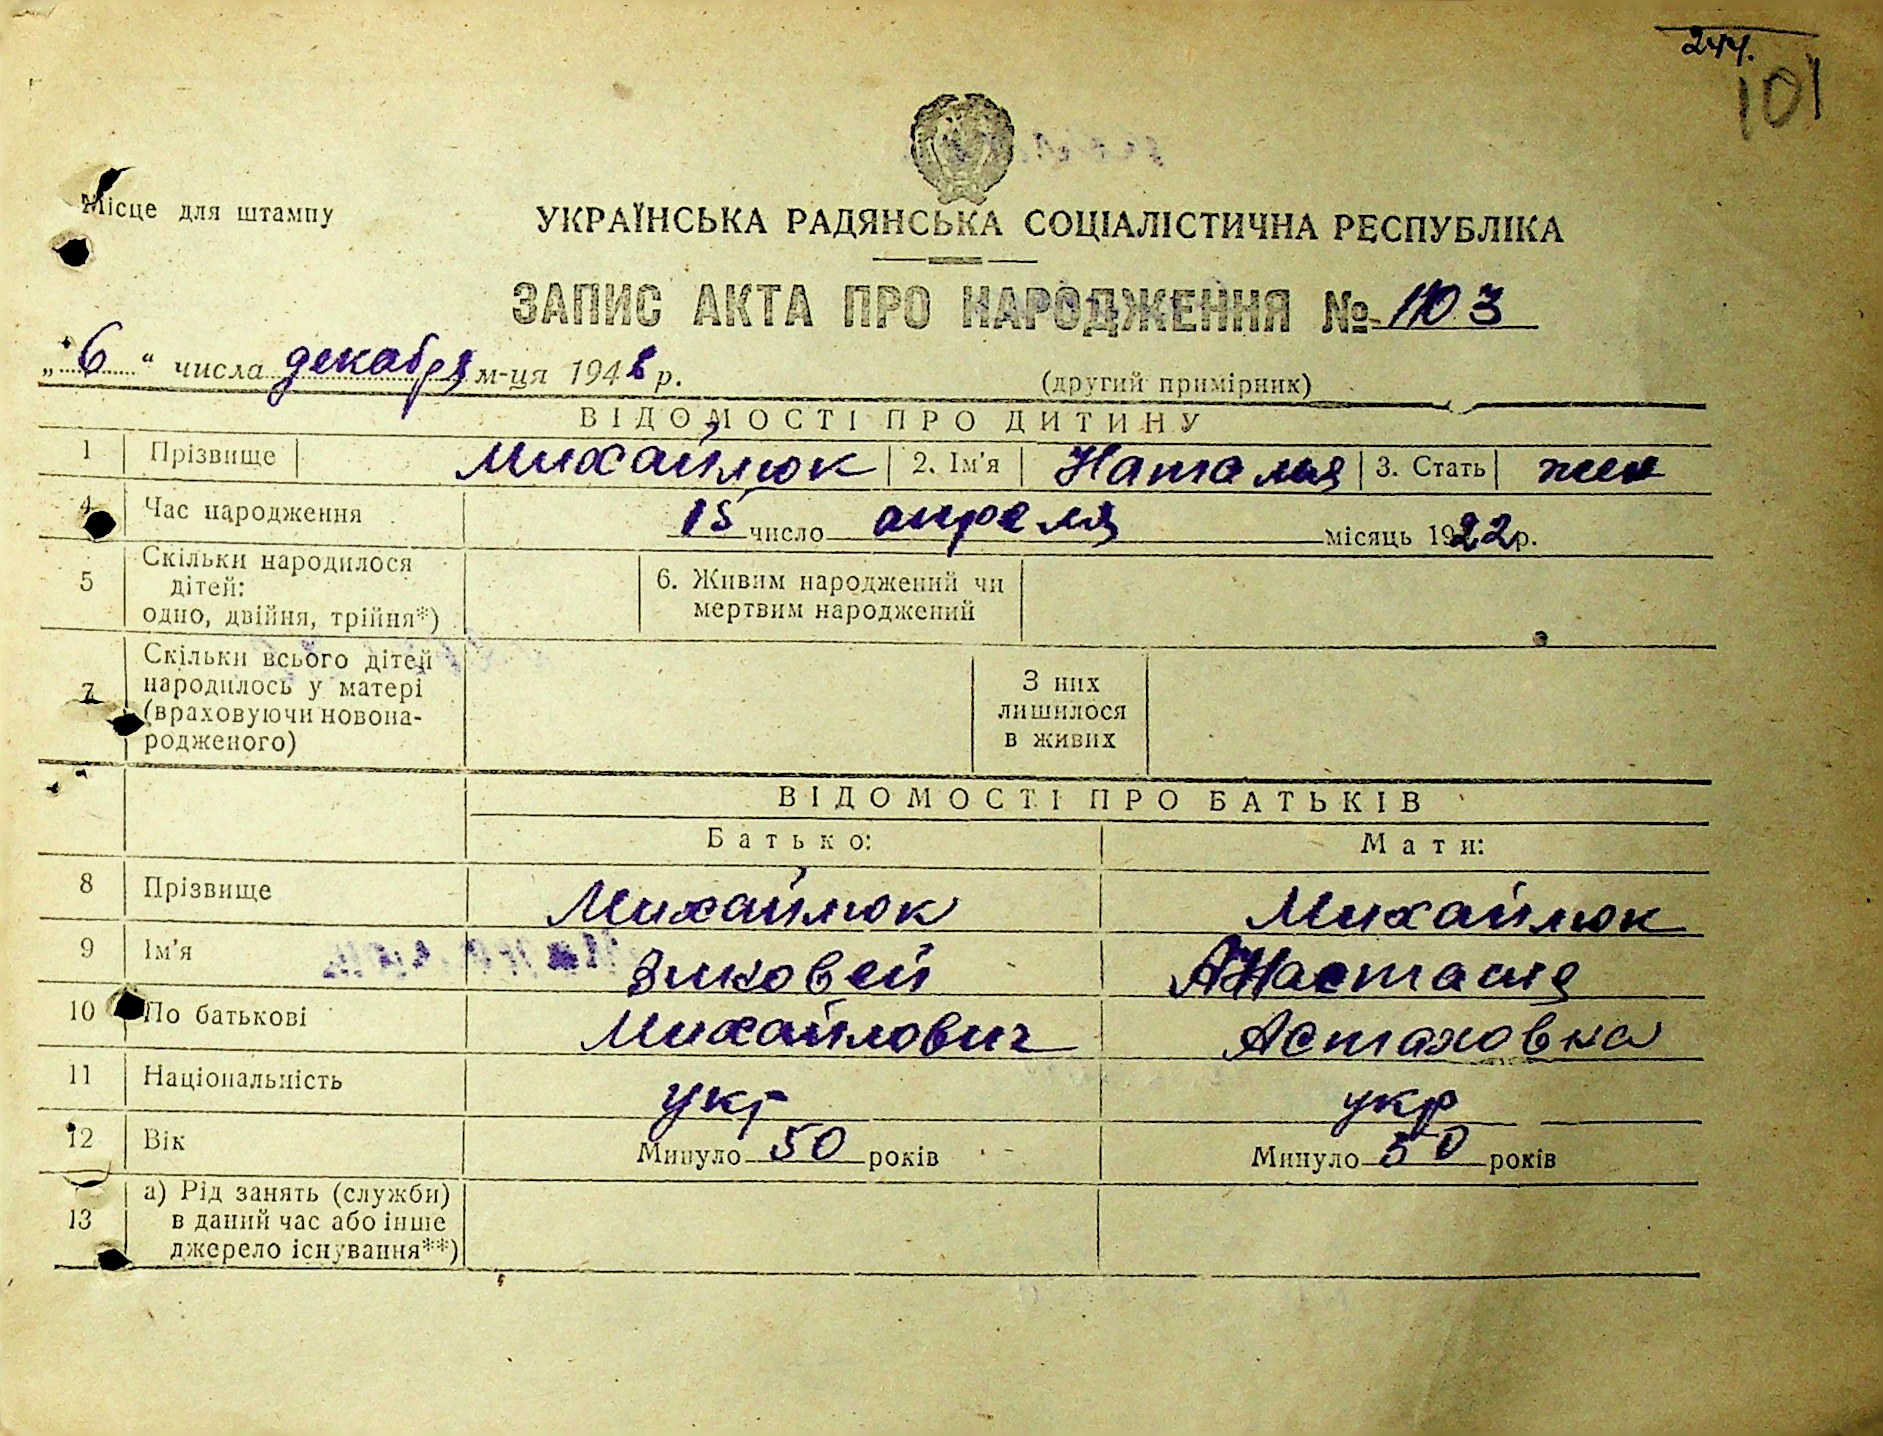 244.
101
Місце для штампу
УКРАЇНСЬКА РАДЯНСЬКА СОЦІАЛІСТИЧНА РЕСПУБЛІКА
ЗАПИС АКТА ПРО НАРОДЖЕННЯ № 1103
„6“ числа декабря м-ця 1948 р.
(другий примірник)
ВІДОМОСТІ ПРО ДИТИНУ
1 Прізвище Михайлюк 2. Ім'я Наталия 3. Стать жен
4 Час народження 15 число апреля місяць 1922 р.
5 Скільки народилося дітей: одно, двійня, трійня*) 6. Живим народжений чи мертвим народжений
7 Скільки всього дітей народилось у матері (враховуючи новонародженого) З них лишилося в живих
ВІДОМОСТІ ПРО БАТЬКІВ
Батько: Мати:
8 Прізвище Михайлюк Михайлюк
9 Ім'я Зиновей Анастасия
10 По батькові Михайлович Астаховна
11 Національність укр укр
12 Вік Минуло 50 років Минуло 50 років
13 а) Рід занять (служби) в даний час або інше джерело існування**)